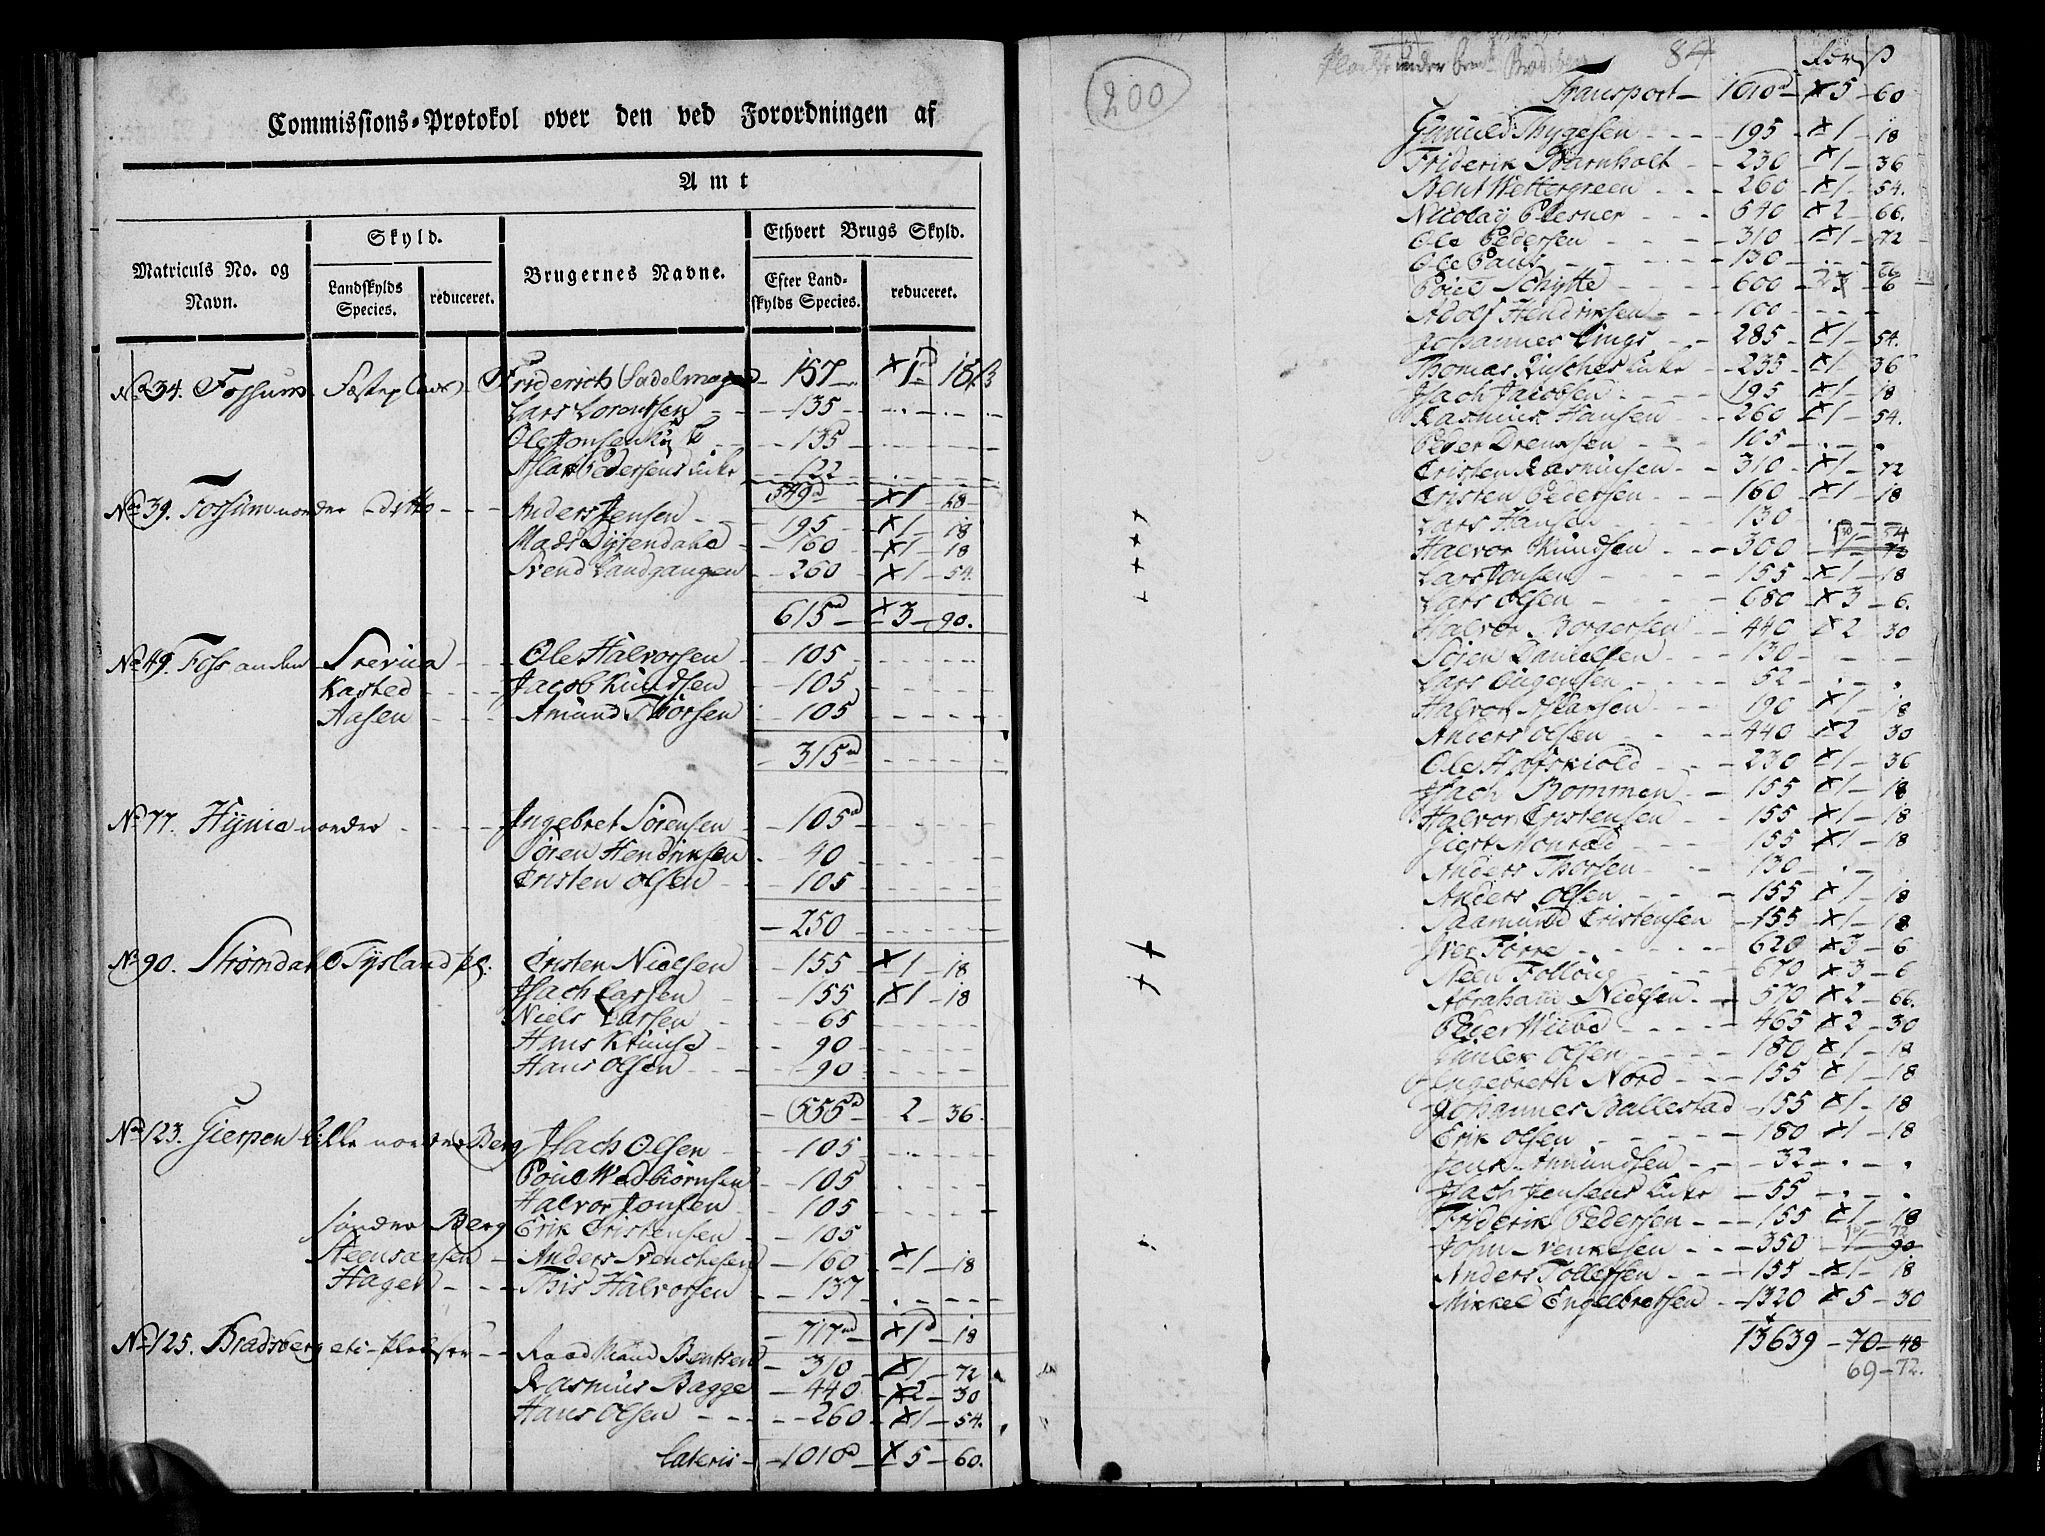 Commissions-Protokol over den ved Forordningen af
Amt
Matriculs No. og Navn.
Skyld.
Landskylds Species.
reduceret.
Brugernes Navne.
Ethvert Brugs Skyld.
Efter Landskylds Species.
reduceret.
No 34. Fossum Friderich Sadelmager 157 - x1 - 18 ß
Lars Lorentsen - 135
Ole Jonsen - 135
Aslak Pedersens Enke - 122
549 - x1 - 18
No 39. Fossum nordre ditto - Anders Jensen - 195 - x1 - 18
Mads Dysendahl - 160 - x1 - 18
Svend Landgangen - 260 - x1 - 54.
615 - x3 - 90.
No 49. Foss anden Ole Halvorsen - 105
Kasted - Jacob Knudsen - 105
Aasen - Amund Thorsen - 105
315
No 77. Hynie nordre - Ingebret Sørensen - 105
Søren Hendriksen - 40
Cristen Olsen - 105
250
No 90. Strømdahl Tysland pl. Cristen Nielsen - 155 x1 - 18
Isach Larsen - 155 x1 - 18
Niels Larsen - 65
Hans Kruuse - 90
Hans Olsen - 90
555 - 2 - 36.
No 123. Gierpen Lille nordre Berg Isach Olsen - 105
Poul Wedbiørnsen - 105
Halvor Jonsen - 105
søndre Berg Erik Cristensen - 105
Steensaasen - Anders Svenchesen - 160 - x1 - 18
Hagen - This Halvorsen - 137
717 - x1 - 18
No 125. Bradsberg ets pladser - Raadmand Bentsen - 310 - x1 - 72
Rasmus Bagge - 440 - x2 - 30
Hans Olsen - 260 - x1 - 54.
Lateris - 1010 - x5 - 60.
200
84
Transport - 1010 - x5 - 60
Gunuld Thygesen - 195 - x1 - 18
Friderik Barnholt - 230 x1 - 36
Bent Wettergreen - 260 - x1 - 54.
Nicolay Plesner - 540 - x2 - 66.
Ole Pedersen - 310 - x1 - 72
Ole Paus - 130
Poul Schytte - 600 - 2
Adolf Hendriksen - 100
Johannes Lings - 285 x1 - 54.
Thomas Enke - 235 - x1 - 36
Isach Jacobsen - 195 - x1 - 18
Rasmus Hansen - 260 x1 - 54.
Peder Drensen - 105
Cristen Rasmusen - 310 - x1 - 72
Cristen Pedersen - 160 - x1 - 18
Lars Hansen - 130
Halvor Knudsen - 300 - 1 - 54
Lars Jonsen - 155 - x1 - 18
Lars Olsen - 680 - x3 - 6.
Halvor Borgersen - 440 x2 - 30
Søren Danielsen - 130
Lars - 52
Halvor - 190 x1 - 18
Anders Olsen - 440 x2 30
Ole Hafskiold - 230 x1 - 36
Isach Bommen - 155 x1 - 18
Halvor Cristensen - 155 x1 - 18
Giert Monrad - 155 x1 - 18
Anders Thorsen - 130
Anders Olsen - 155 x1 - 18
Saamund Cristensen - 155 - x1 - 18
Iver Torre - 620 x3 - 6
Steen Følloug - 670 x3 - 6
Abraham Nielsen - 570 x2 - 66.
Peder Wiibe - 465 x2 - 30
Gunler Olsen - 180 x1 - 18
Ingebreth Nord - 155 x1 - 18
Johannes Ballestad - 155 x1 - 18
Erik Olsen - 180 x1 - 18
Jens Amundsen - 32
Isach Jensens Enke - 55
Friderik Pedersen - 155 x1 - 18
John Svenkesen - 350 - 1 - 90
Anders Tollefsen - 155 x1 - 18
Mikkel Engelbretsen - 1320 x5 - 30
13639 - 70 - 48
69 - 72.